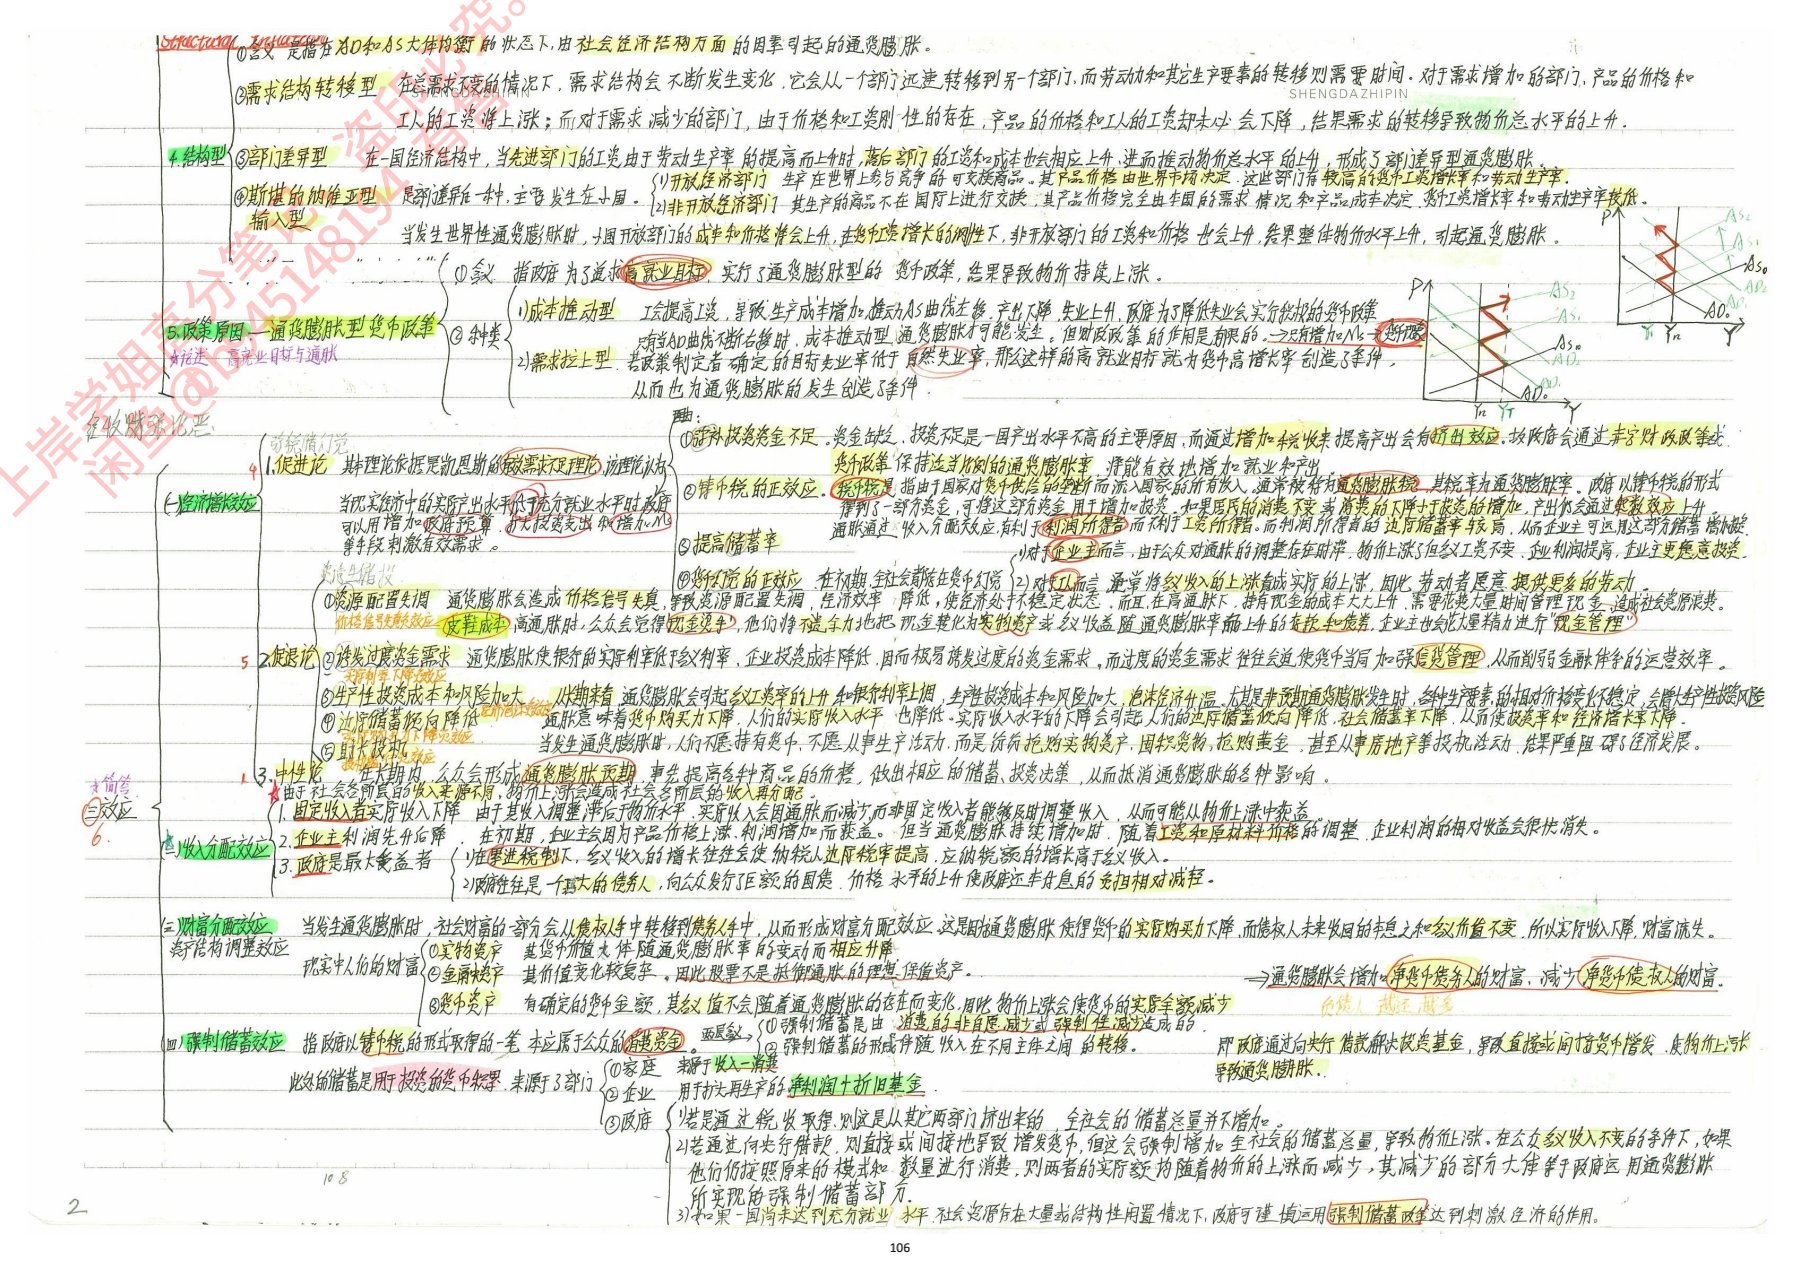 Structural Inflation
①含义 是指在AD和AS大体均衡的状态下,由社会经济结构方面的因素引起的通货膨胀。
4.结构型
②需求结构转移型 在总需求不变的情况下,需求结构会不断发生变化,它会从一个部门迅速转移到另一个部门,而劳动力和其它生产要素的转移则需要时间。对于需求增加的部门,产品的价格和
SHENGDAZHIPIN SHENGDAZHIPIN
工人的工资将上涨;而对于需求减少的部门,由于价格和工资刚性的存在,产品的价格和工人的工资却未必会下降,结果需求的转移导致物价总水平的上升.
③部门差异型 在一国经济结构中,当先进部门的工资由于劳动生产率的提高而上升时,落后部门的工资和成本也会相应上升,进而推动物价总水平的上升,形成了部门差异型通货膨胀.
④斯堪的纳维亚型 是部门差异的一种,主要发生在小国。
输入型
(1)开放经济部门 生产在世界上参与竞争的可交换商品。其产品价格由世界市场决定.这些部门有较高的货币工资增长率和劳动生产率.
(2)非开放经济部门 其生产的商品不在国际上进行交换,其产品价格完全由本国的需求情况和产品成本决定,货币工资增长率和劳动生产率较低。
当发生世界性通货膨胀时,小国开放部门的成本和价格将会上升,在货币工资增长的刚性下,非开放部门的工资和价格也会上升,结果整体物价水平上升,引起通货膨胀。
P AS₂ AS₁ AS₀ AD₂ AD₁ AD₀ Y₁ Yn Y
5.政策原因—通货膨胀型货币政策
☆论述 高就业目标与通胀
①含义 指政府为了追求高就业目标,实行了通货膨胀型的货币政策,结果导致物价持续上涨。
②种类
1)成本推动型 工会提高工资,导致生产成本增加,推动AS曲线左移,产出下降,失业上升,政府为了降低失业会实行积极的货币政策
只有当AD曲线不断右移时,成本推动型通货膨胀才可能发生。但财政政策的作用是有限的.→只有增加Ms→货币现象
2)需求拉上型 若政策制定者确定的目标失业率低于自然失业率,那么这样的高就业目标就为货币高增长率创造了条件,
从而也为通货膨胀的发生创造了条件.
P AS₂ AS₁ AS₀ AD₂ AD₁ AD₀ Yn YT Y
三效应
6.
☆简答
(一)经济增长效应
4
1.促进论 其理论依据是凯恩斯的有效需求不足理论,该理论认为
当现实经济中的实际产出水平低于充分就业水平时,政府
可以用增加政府预算、扩大投资支出和增加Ms
等手段刺激有效需求。
理由:
①弥补投资资金不足.资金缺乏、投资不足是一国产出水平不高的主要原因,而通过增加税收来提高产出会有挤出效应.故政府会通过赤字财政政策或
货币政策保持适当比例的通货膨胀率,将能有效地增加就业和产出.
②铸币税的正效应.铸币税是指由于国家对货币供给的垄断而流入国家的所有收入.通常被称为通货膨胀税,其税率为通货膨胀率.政府以铸币税的形式
得到了一部分资金,可将这部分资金用于增加投资.如果居民的消费不变或消费的下降小于投资的增加,产出仍会通过乘数效应上升.
③提高储蓄率 通胀通过收入分配效应,有利于利润所得者而不利于工资所得者。而利润所得者的边际储蓄率较高,从而企业主可运用这部分储蓄增加投资.
④货币幻觉的正效应 在初期,全社会都存在货币幻觉
1)对于企业主而言,由于公众对通胀的调整存在时滞,物价上涨了但名义工资不变,企业利润提高,企业主更愿意投资.
2)对员工而言,通常将名义收入的上涨看成实际的上涨,因此,劳动者愿意提供更多的劳动.
5
2.促退论
①资源配置失调 通货膨胀会造成价格信号失真,导致资源配置失调,经济效率降低,使经济处于不稳定状态.而且,在高通胀下,持有现金的成本大大上升,需要花费大量时间管理现金,造成社会资源浪费.
价格信号失真失效应
皮鞋成本 高通胀时,公众会觉得现金烫手,他们将不遗余力地把现金转化为实物资产或名义收益随通货膨胀率而上升的存款和债券,企业主也会花大量精力进行“现金管理”
②诱发过度资金需求 通货膨胀使银行的实际利率低于名义利率,企业投资成本降低,因而极易诱发过度的资金需求.而过度的资金需求往往会迫使货币当局加强信贷管理,从而削弱金融体系的运营效率。
实际利率下降效应
③生产性投资成本和风险加大 从长期来看,通货膨胀会引起名义工资率的上升和银行利率上调,生产性投资成本和风险加大,泡沫经济升温.尤其是非预期通货膨胀发生时,各种生产要素的相对价格变化不稳定,会增大生产性投资风险
④边际储蓄倾向降低 通胀意味着货币购买力下降,人们的实际收入水平也降低.实际收入水平的下降会引起人们的边际储蓄倾向降低,社会储蓄率下降,从而使投资率和经济增长率下降.
⑤助长投机 当发生通货膨胀时,人们不愿持有货币、不愿从事生产活动,而是纷纷抢购实物资产,囤积货物,抢购黄金,甚至从事房地产等投机活动,结果严重阻碍了经济发展。
1
3.中性论 在长期内,公众会形成通货膨胀预期,事先提高各种商品的价格,做出相应的储蓄、投资决策,从而抵消通货膨胀的各种影响.
★由于社会各阶层的收入来源不同,物价上涨会造成社会各阶层的收入再分配。
(二)收入分配效应
1.固定收入者实际收入下降 由于其收入调整滞后于物价水平,实际收入会因通胀而减少,而非固定收入者能够及时调整收入,从而可能从物价上涨中获益.
2.企业主利润先升后降.在初期,企业主会因为产品价格上涨、利润增加而获益。但当通货膨胀持续增加时,随着工资和原材料价格的调整,企业利润的相对收益会很快消失。
3.政府是最大受益者
1)在累进税制下,名义收入的增长往往会使纳税人边际税率提高,应纳税额的增长高于名义收入。
2)政府往往是一个巨大的债务人,向公众发行了巨额的国债.价格水平的上升使政府还本付息的负担相对减轻。
(三)财富分配效应 当发生通货膨胀时,社会财富的一部分会从债权人手中转移到债务人手中,从而形成财富分配效应.这是因为通货膨胀使得货币的实际购买力下降,而债权人未来收回的本息之和名义价值不变,所以实际收入下降,财富流失。
资产结构调整效应
现实中人们的财富
①实物资产 其货币价值大体随通货膨胀率的变动而相应升降
②金融资产 其价值变化较复杂。因此股票不是抵御通胀的理想保值资产。
③货币资产 有确定的货币金额,其名义值不会随着通货膨胀的存在而变化,因此,物价上涨会使货币的实际余额减少
→通货膨胀会增加净货币债务人的财富,减少净货币债权人的财富.
(四)强制储蓄效应 指政府以铸币税的形式取得的一笔本应属于公众的消费资金。
两层含义
①强制储蓄是由消费的非自愿减少或强制性减少造成的.
②强制储蓄的形成伴随收入在不同主体之间的转移。
即政府通过向央行借款解决投资基金,导致直接或间接货币增发,使物价上涨
导致通货膨胀.
此处的储蓄是用于投资的货币积累,来源于3部门
①家庭 来源于收入一消费
②企业 用于扩大再生产的净利润+折旧基金
③政府
1)若是通过税收取得,则这是从其它两部门挤出来的,全社会的储蓄总量并不增加。
2)若通过向央行借款,则直接或间接地导致增发货币,但这会强制增加全社会的储蓄总量,导致物价上涨.在公众名义收入不变的条件下,如果
他们仍按照原来的模式和数量进行消费,则两者的实际额均随着物价的上涨而减少,其减少的部分大体等于政府运用通货膨胀
所实现的强制储蓄部分.
3)如果一国尚未达到充分就业水平,社会资源存在大量或结构性闲置情况下,政府可谨慎运用强制储蓄政策达到刺激经济的作用。
108
2
106
上岸学姐高分笔记,盗印必究。